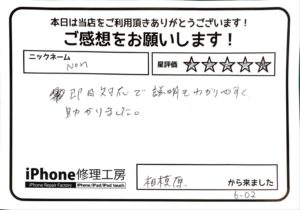 本日は当店をご利用頂きありがとうございます！
ご感想をお願いします！
ニックネーム
non
星評価 ☆☆☆☆☆
即日対応で説明もわかりやすく、
助かりました。
iPhone修理工房
iPhone Repair Factory iPhone/iPad/iPod touch
相模原 から来ました
6-02